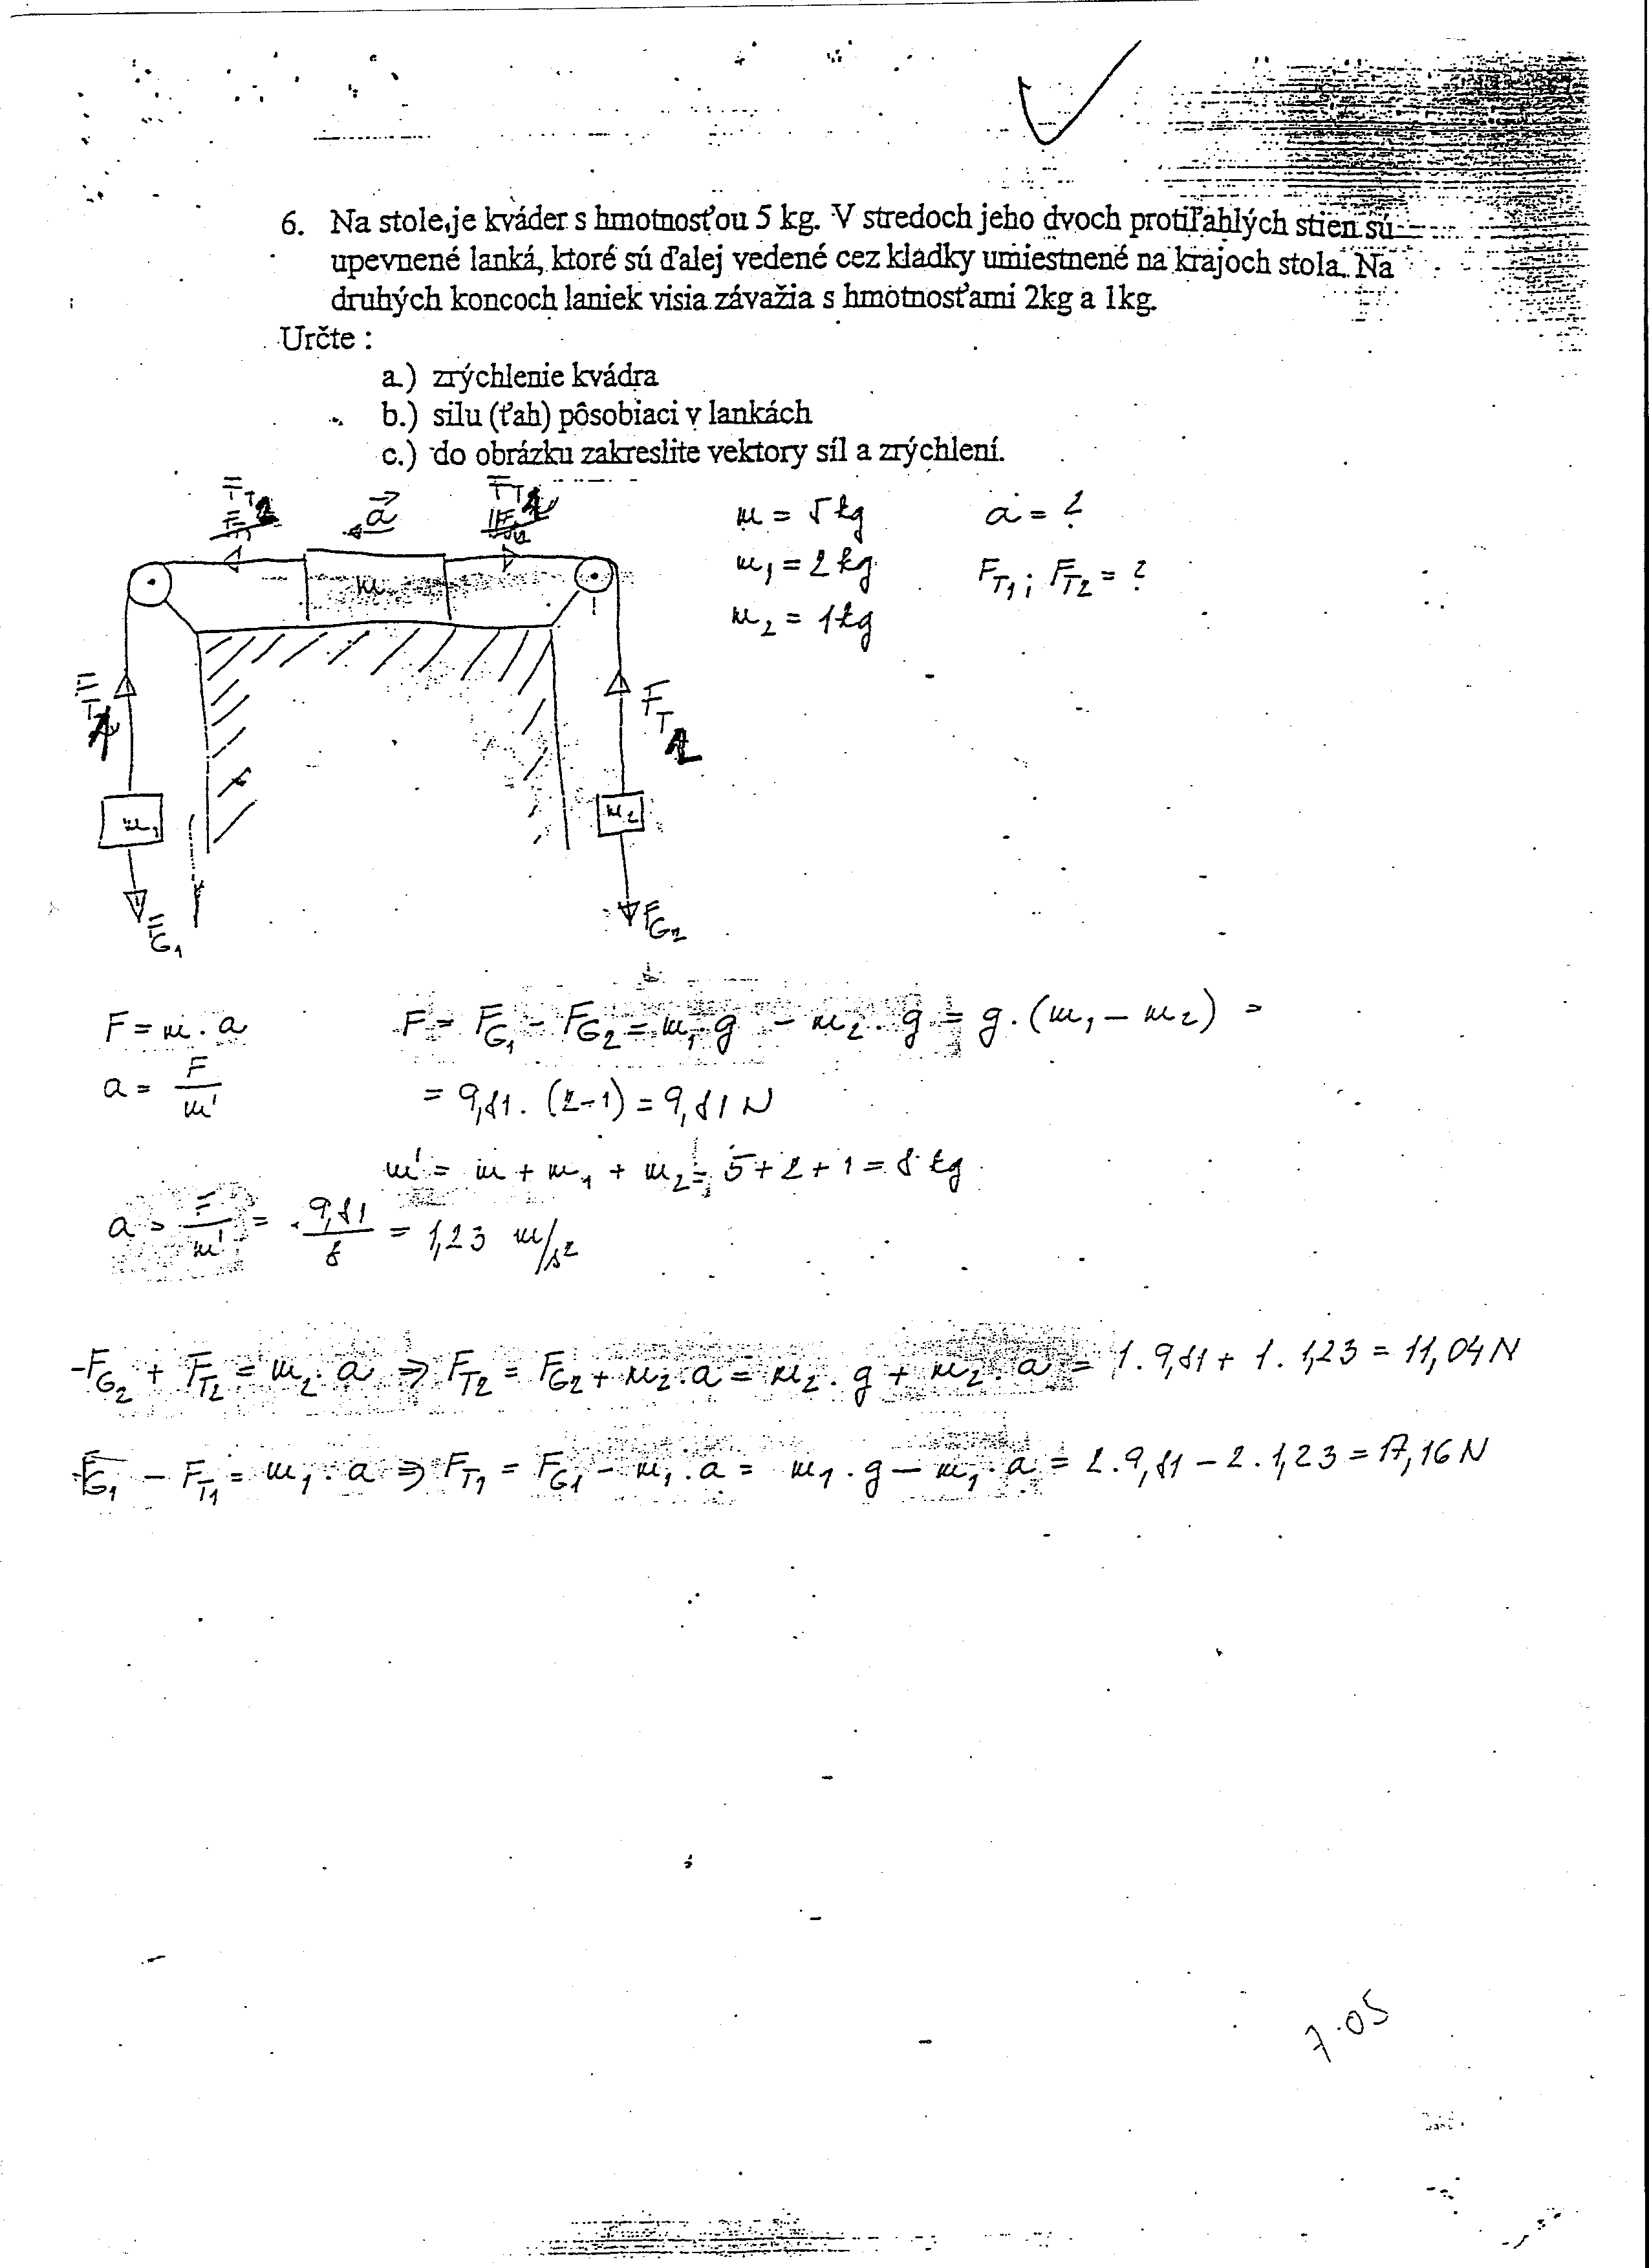 6. Na stole je kváder s hmotnosťou 5 kg. V stredoch jeho dvoch protiľahlých stien sú
upevnené lanká, ktoré sú ďalej vedené cez kladky umiestnené na krajoch stola. Na
druhých koncoch laniek visia závažia s hmotnosťami 2kg a 1kg.
Určte :
a.) zrýchlenie kvádra
b.) silu (ťah) pôsobiaci v lankách
c.) do obrázku zakreslite vektory síl a zrýchlení.
a
m = 5 kg a = ?
m₁ = 2 kg F_T1 ; F_T2 = ?
m₂ = 1 kg
m
F_T2
m₁ m₂
F_G1 F_G2
F = m . a F = F_G1 - F_G2 = m₁ g - m₂ . g = g . (m₁ - m₂) =
a = F/m' = 9,81 . (2-1) = 9,81 N
m' = m + m₁ + m₂ = 5 + 2 + 1 = 8 kg
a = F/m' = 9,81/8 = 1,23 m/s²
-F_G2 + F_T2 = m₂ . a ⇒ F_T2 = F_G2 + m₂ . a = m₂ . g + m₂ . a = 1 . 9,81 + 1 . 1,23 = 11,04 N
F_G1 - F_T1 = m₁ . a ⇒ F_T1 = F_G1 - m₁ . a = m₁ . g - m₁ . a = 2 . 9,81 - 2 . 1,23 = 17,16 N
7.05